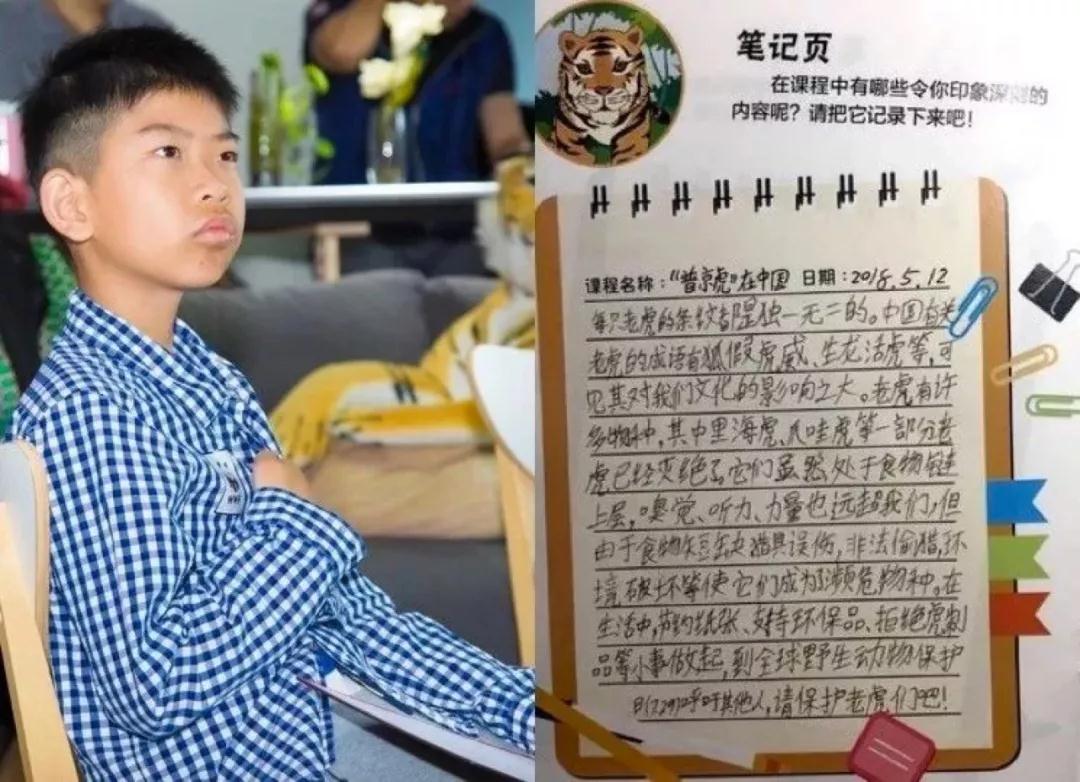 笔记页
在课程中有哪些令你印象深刻的
内容呢？请把它记录下来吧！
课程名称：“普京虎”在中国 日期：2018.5.12
每只老虎的条纹都是独一无二的。中国有关
老虎的成语有狐假虎威、生龙活虎等，可
见其对我们文化的影响之大。老虎有许
多物种，其中里海虎、爪哇虎等一部分老
虎已经灭绝了它们虽然处于食物链
上层，嗅觉、听力、力量也远超我们，但
由于食物短缺猎具误伤，非法偷猎，环
境破坏等使它们成为了濒危物种。在
生活中，节约纸张、支持环保品、拒绝虎制
品等小事做起，到全球野生动物保护
日(7.29)呼吁其他人，请保护老虎们吧！